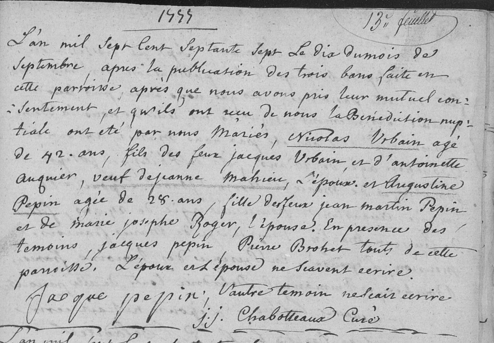 1777
13e feuillet
L'an mil sept Cent Septante sept Le dix Dumois de
Septembre apres la publication des trois bans faite en
cette parroisse après que nous avons pris leur mutuel con-
:sentement, et qu'ils ont reçu de nous la Benediction nup-
tiale ont eté par nous Mariés, Nicolas Urbain agé
de 42 ans, fils des feux jacques Urbain, et d'antoinette
auquier, veuf de jeanne mahieu, L'époux. et Augustine
Pepin agée de 28 ans, fille des feux jean martin Pepin
et de marie josephe Roger, l'épouse. En presence des
temoins, jacques pepin, Pierre Brohet touts de cette
parroisse. L'époux et L'épouse ne scavent ecrire.
jacque pepin, L'autre temoin ne scait ecrire
j.j. Chabotteaux Curé
L'an mil